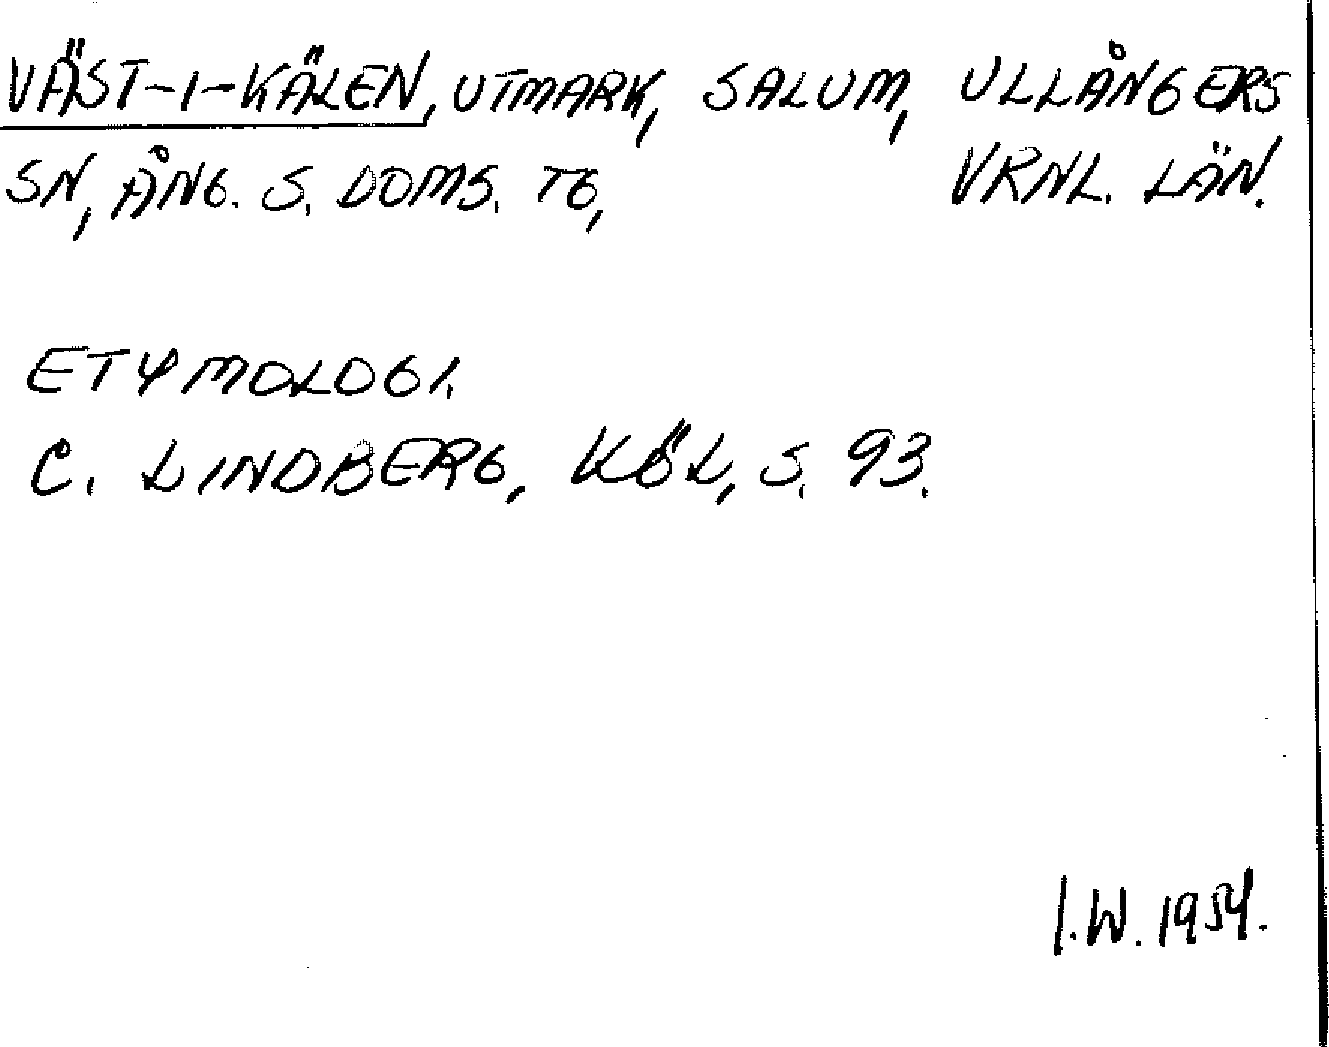 VÄST-I-KÄLEN, UTMARK, SALUM, ULLÅNGERS
SN, ÅNG. S. DOMS. TG, VRNL. LÄN.
ETYMOLOGI.
C. LINDBERG, KÖL, S. 93.
I.W. 1954.